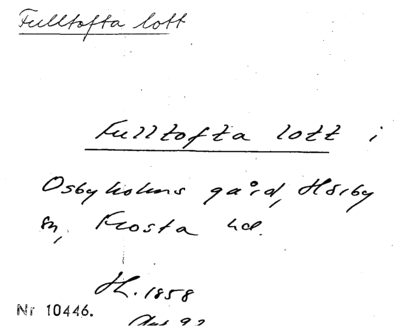 Fulltofta lott
Fulltofta lott i
Osbyholms gård, Hörby
sn, Frosta hd.
H. 1858
Nr 10446.